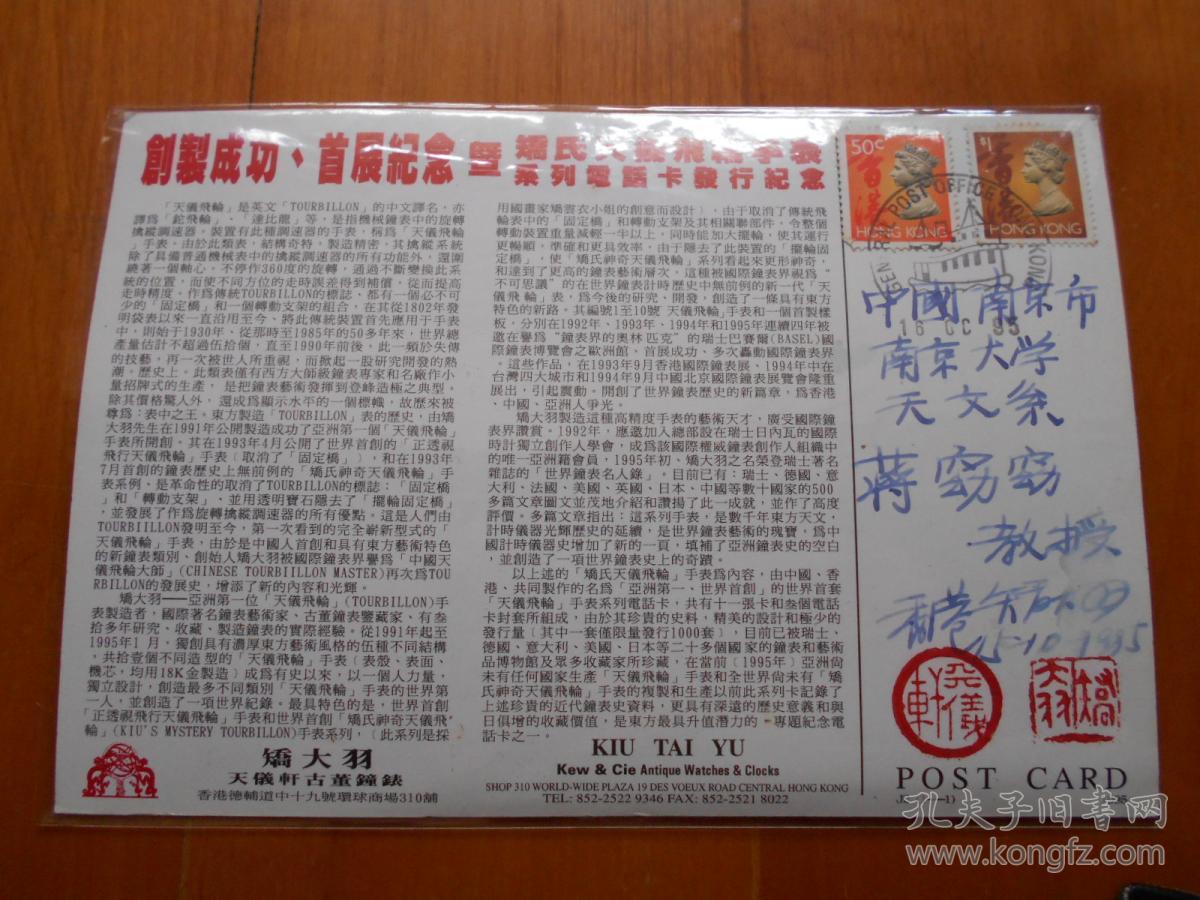 創製成功、首展紀念暨
矯氏天儀飛輪手表
系列電話卡發行紀念
「天儀飛輪」是英文「TOURBILLON」的中文譯名，亦
譯爲「鉈飛輪」、「達比龍」等，是指機械鐘表中的旋轉
擒縱調速器。裝置有此種調速器的手表，稱爲「天儀飛輪
」手表。由於此類表，結構奇特，製造精密，其擒縱系統
除了具備普通機械表中的擒縱調速器的所有功能外，還圍
繞著一個軸心，不停作360度的旋轉，通過不斷變換此系
統的位置，而使不同方位的走時誤差得到補償，從而提高
走時精度。作爲傳統TOURBILLON的標誌，都有一個必不可
少的「固定橋」和一個轉動支架的組合。在其從1802年發
明袋表以來一直沿用至今。將此傳統裝置首先應用于手表
中，則始于1930年。從那時至1985年的50多年來，世界總
產量估計不超過伍拾個，直至1990年前後，此一頻於失傳
的技藝，再一次被世人所重視，而掀起一股研究開發的熱
潮。歷史上，此類表僅有西方大師級鐘表專家和名廠作小
量招牌式的生產，是把鐘表藝術發揮到登峰造極之典型。
除其價格驚人外，還成爲顯示水平的一個標幟，故歷來被
尊爲：表中之王。東方製造「TOURBILLON」表的歷史，由矯
大羽先生在1991年公開製造成功了亞洲第一個「天儀飛輪」
手表所開創。其在1993年4月公開了世界首創的「正透視
飛行天儀飛輪」手表﹝取消了「固定橋」﹞，和在1993年
7月首創的鐘表歷史上無前例的「矯氏神奇天儀飛輪」手
表系例、是革命性的取消了TOURBILLON的標誌：「固定橋
」和「轉動支架」、並用透明寶石隱去了「擺輪固定橋」
，並發展了作爲旋轉擒縱調速器的所有優點。這是人們由
TOURBIILLON發明至今，第一次看到的完全嶄新型式的「
天儀飛輪」手表。由於是中國人首創和具有東方藝術特色
的新鐘表類別。創始人矯大羽被國際鐘表界譽爲“中國天
儀飛輪大師」(CHINESE TOURBIILLON MASTER)再次爲TOU
RBILLON的發展史，增添了新的內容和光輝。
矯大羽——亞洲第一位「天儀飛輪」(TOURBILLON)手
表製造者，國際著名鐘表藝術家、古董鐘表鑒藏家、有叁
拾多年研究、收藏、製造鐘表的實際經驗。從1991年起至
1995年1月，獨創具有濃厚東方藝術風格的伍種不同結構
，共拾壹個不同造型的「天儀飛輪」手表﹝表殼、表面、
機芯，均用18K金製造﹞成爲有史以來，以一個人力量，
獨立設計，創造最多不同類別「天儀飛輪」手表的世界第
一人，並創造了一項世界紀錄。最具特色的是，世界首創
「正透視飛行天儀飛輪」手表和世界首創「矯氏神奇天儀飛
輪」(KIU'S MYSTERY TOURBILLON)手表系列，﹝此系列是採
用國畫家矯雲衣小姐的創意而設計﹞，由于取消了傳統飛
輪表中的「固定橋」和轉動支架及其相關聯部件，令整個
轉動裝置重量減輕一半以上，同時能加大擺輪，使其運行
更暢順，準確和更具效率。由于隱去了此裝置的「擺輪固
定橋」，使「矯氏神奇天儀飛輪」系列看起來更形神奇，
和達到了更高的鐘表藝術層次。這種被國際鐘表界視爲“
不可思議”的在世界鐘表計時歷史中無前例的新一代「天
儀飛輪」表，爲今後的研究、開發，創造了一條具有東方
特色的新路。其編號1至10號 天儀飛輪」手表和一個首製樣
板，分別在1992年、1993年、1994年和1995年連續四年被
邀在譽爲“鐘表界的奧林匹克”的瑞士巴賽爾(BASEL)國
際鐘表博覽會之歐洲館，首展成功、多次轟動國際鐘表界
。這些作品，在1993年9月香港國際鐘表展，1994年中在
台灣四大城市和1994年9月中國北京國際鐘表展覽會隆重
展出，引起震動，開創了世界鐘表歷史的新篇章，爲香港
、中國、亞洲人爭光。
矯大羽製造這種高精度手表的藝術天才，廣受國際鐘
表界讚賞。1992年，應邀加入總部設在瑞士日內瓦的國際
時計獨立創作人學會，成爲該國際權威鐘表創作人組織中
的唯一亞洲籍會員，1995年初、矯大羽之名榮登瑞士著名
雜誌的「世界鐘表名人錄」，目前已有：瑞士、德國、意
大利、法國、美國、英國、日本、中國等數十國家的500
多篇文章圖文並茂地介紹和讚揚了此一成就，並作了高度
評價。多篇文章指出：這系列手表，是數千年東方天文、
計時儀器光輝歷史的延續，是世界鐘表藝術的瑰寶。爲中
國計時儀器史增加了新的一頁，填補了亞洲鐘表史的空白
，並創造了一項世界鐘表史上的奇蹟。
以上述的「矯氏天儀飛輪」手表爲內容，由中國、香
港、共同製作的名爲「亞洲第一、世界首創」的世界首套
「天儀飛輪」手表系列電話卡，共有十一張卡和叁個電話
卡封套所組成，由於其珍貴的史料，精美的設計和極少的
發行量﹝其中一套僅限量發行1000套﹞，目前已被瑞士、
德國、意大利、美國、日本等二十多個國家的鐘表和藝術
品博物館及眾多收藏家所珍藏，在當前﹝1995年﹞亞洲尚
未有任何國家生產「天儀飛輪」手表和全世界尚未有「矯
氏神奇天儀飛輪」手表的複製和生產以前此系列卡記錄了
上述珍貴的近代鐘表史資料，更具有深遠的歷史意義和與
日俱增的收藏價值，是東方最具升值潛力的 專題紀念電
話卡之一。
矯大羽
天儀軒古董鐘錶
香港德輔道中十九號環球商場310舖
KIU TAI YU
Kew & Cie Antique Watches & Clocks
SHOP 310 WORLD-WIDE PLAZA 19 DES VOEUX ROAD CENTRAL HONG KONG
TEL: 852-2522 9346 FAX: 852-2521 8022
50c
香港
HONG KONG
$1
香港
HONG KONG
POST OFFICE
16 OC 95
中國南京市
南京大学
天文系
蔣窈窕
教授
香港
25-10-1995
天儀軒
矯大羽
POST CARD
孔夫子旧书网
www.kongfz.com